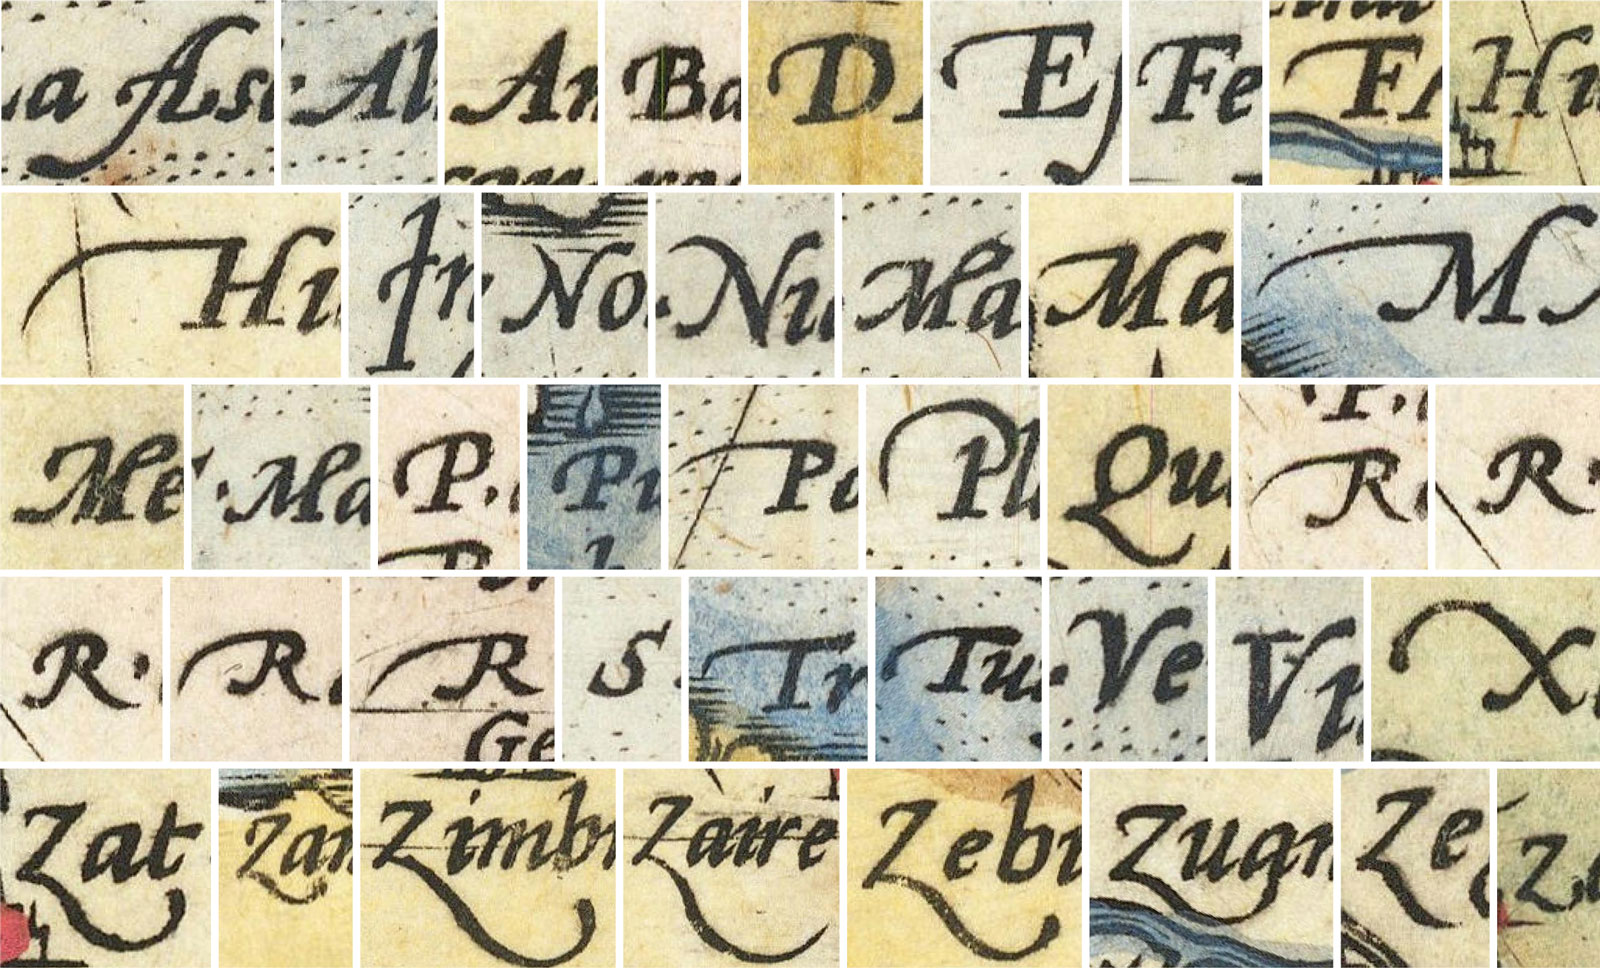 a As Al An Ba D E Fe F Hi
Hi In No Ni Ma Ma M
Me Ma P. Pi Po Pl Qu R R
R R R S Tr Tu Ve Vi X
Ge
Zat Zan Zimb Zaire Zebi Zugn Ze Z